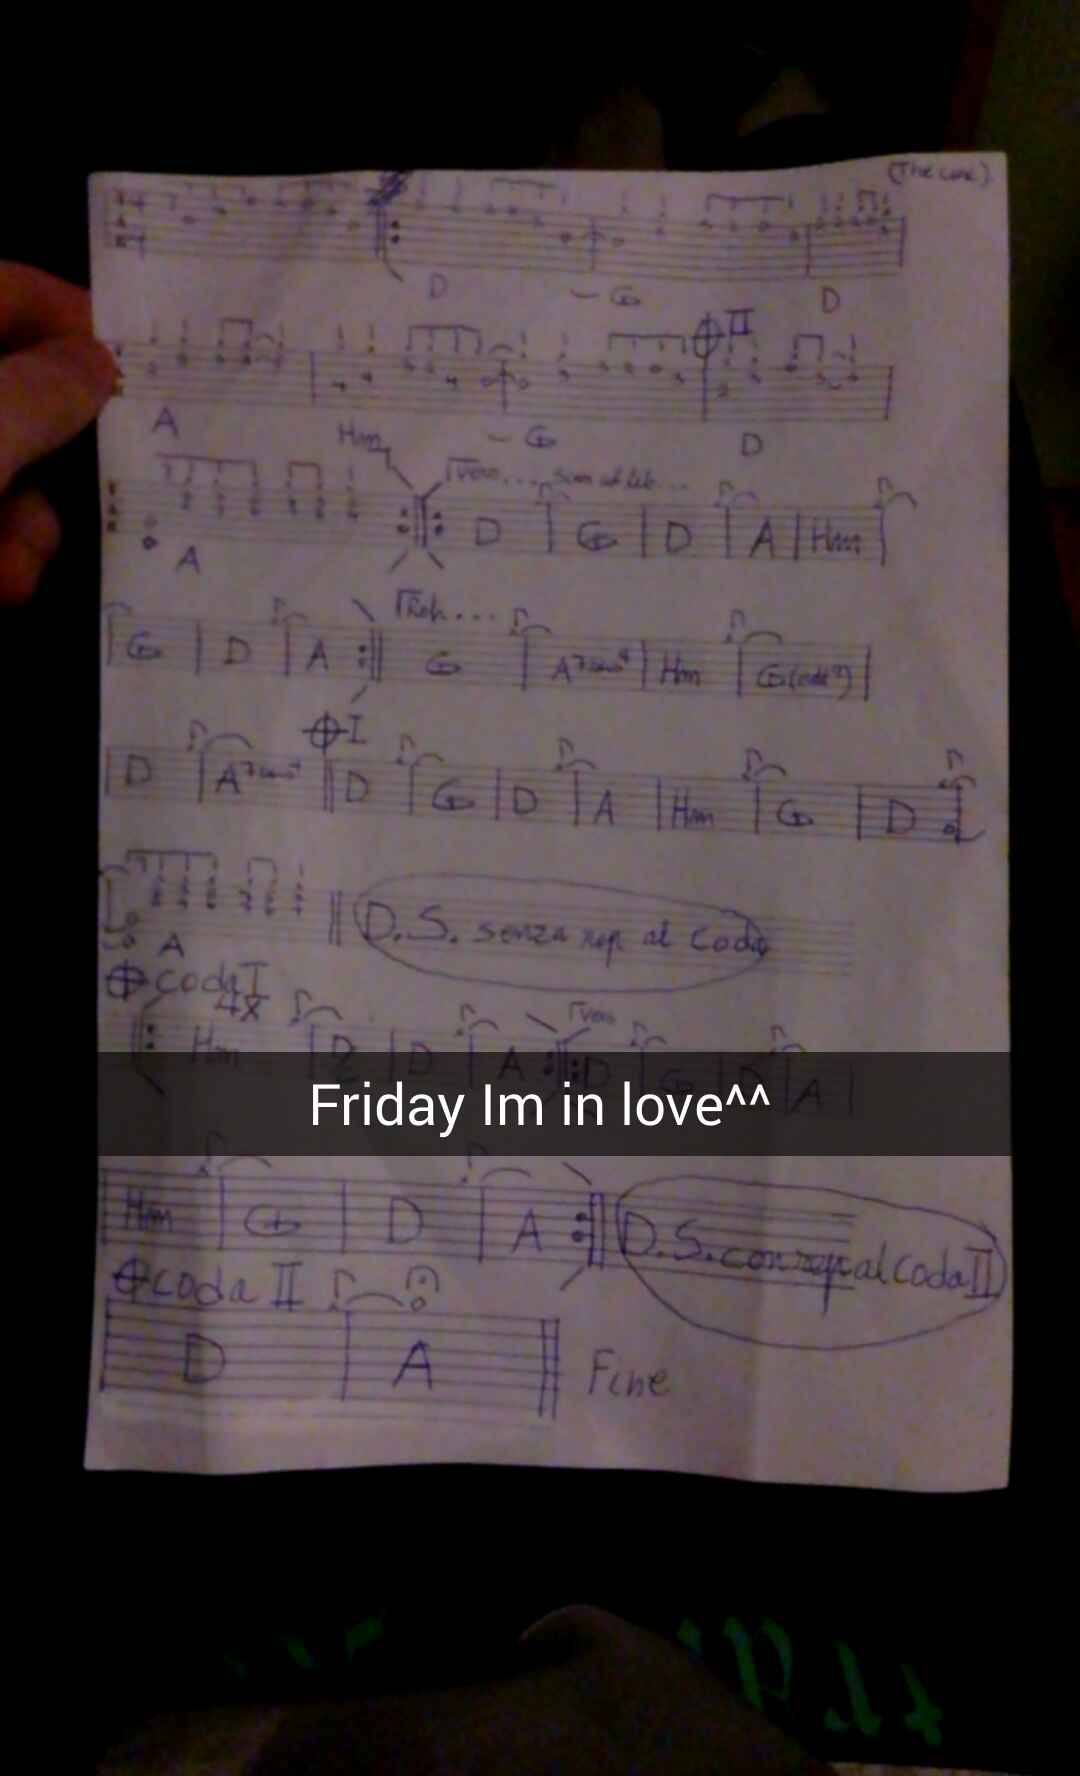 (The Cure)
D G D
II
A Hm G D
A D G D A Hm
G D A G A7sus4 Hm G(add9)
I
D A7sus4 D G D A Hm G D
A D.S. senza rep al Coda
coda I
4x
Hm D A D G D A
Friday Im in love^^
Hm G D A D.S. con rep al Coda II
coda II
D A Fine